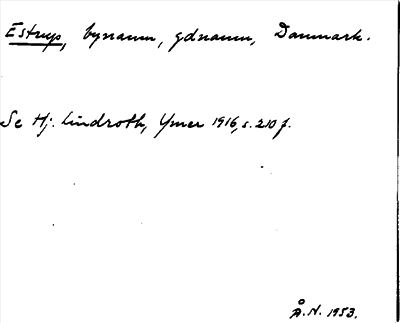 Estrup, bynamn, gdnamn, Danmark.
Se Hj. Lindroth, Ymer 1916, s. 210 f.
Å.N. 1953.